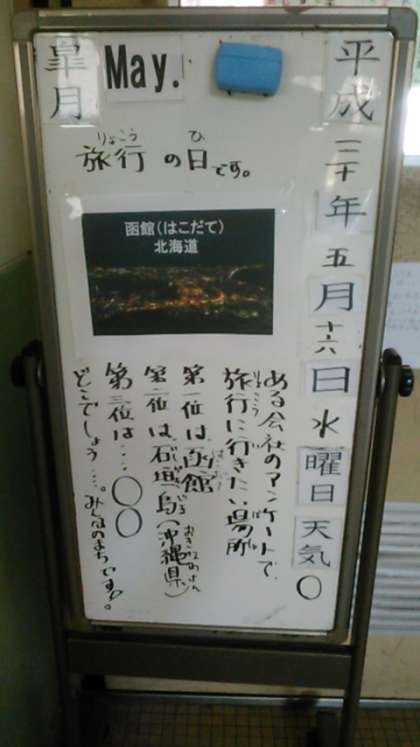 平成三十年五月十六日水曜日天気○
皐月
May.
旅行の日です。
りょこう
ひ
函館(はこだて)
北海道
ある会社のアンケートで、
旅行に行きたい場所
りょこう
い
ばしょ
第一位は、函館
はこだて
第二位は、石垣島(沖縄県)
いしがきじま
おきなわけん
第三位は…○○
どこでしょう…。みんなのまちです。